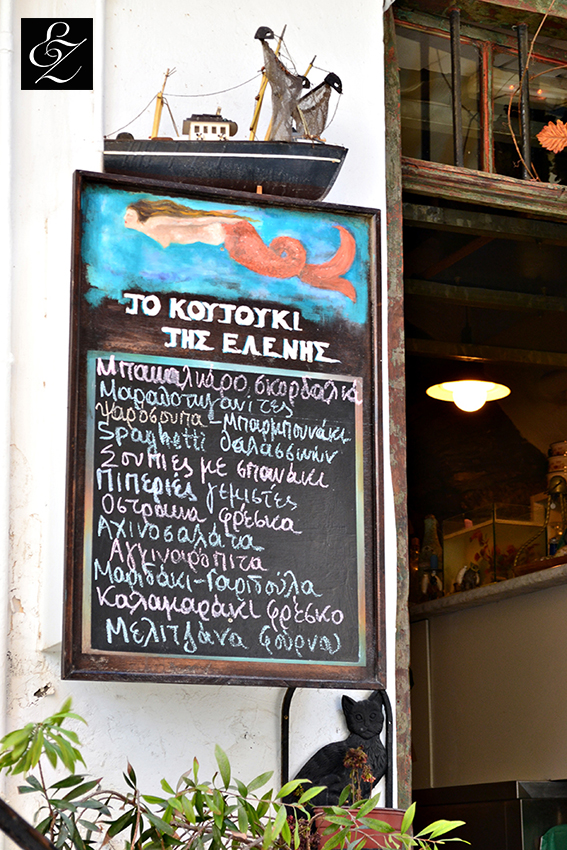 &Z
ΤΟ ΚΟΥΤΟΥΚΙ
ΤΗΣ ΕΛΕΝΗΣ
Μπακαλιάρο σκορδαλιά
Μαραθοτηγανίτες
Ψαρόσουπα - Μπαρμπουνάκι
Spaghetti θαλασσινών
Σουπιές με σπανάκι
Πιπεριές γεμιστές
Όστρακα φρέσκα
Αχινοσαλάτα
Αγγιναρόπιτα
Μαριδάκι - Γαριδούλα
Καλαμαράκι φρέσκο
Μελιτζάνα φούρνου